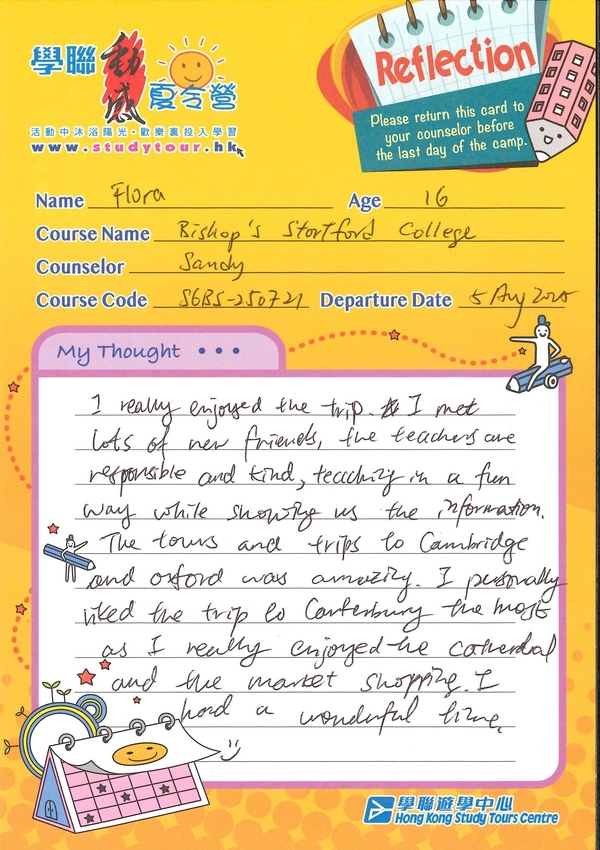 學聯 動感 夏令營
活動中沐浴陽光・歡樂裏投入學習
www.studytour.hk
Reflection
Please return this card to
your counselor before
the last day of the camp.
Name Flora Age 16
Course Name Bishop's Stortford College
Counselor Sandy
Course Code SGBS-250721 Departure Date 5 Aug 2025
My Thought • • •
I really enjoyed the trip. I met
lots of new friends, the teachers are
responsible and kind, teaching in a fun
way while showing us the information.
The tours and trips to Cambridge
and oxford was amazing. I personally
liked the trip to Canterbury the most
as I really enjoyed the cathedral
and the market shopping. I
had a wonderful time.
:)
學聯遊學中心
Hong Kong Study Tours Centre